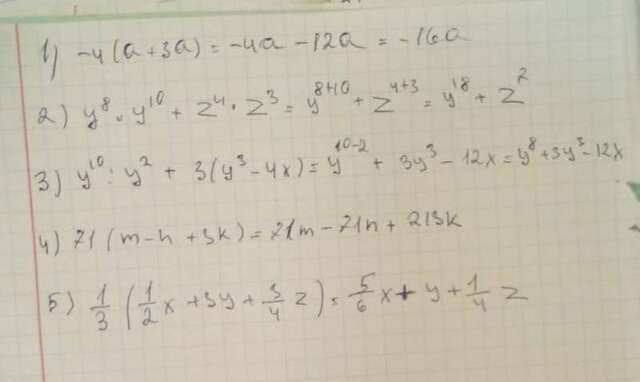 1) -4(a+3a) = -4a -12a = -16a
2) y⁸ · y¹⁰ + z⁴ · z³ = y⁸⁺¹⁰ + z⁴⁺³ = y¹⁸ + z⁷
3) y¹⁰ : y² + 3(y³ - 4x) = y¹⁰⁻² + 3y³ - 12x = y⁸ + 3y³ - 12x
4) 71(m-n+3k) = 71m - 71n + 213k
5) 1/3 (1/2 x + 3y + 3/4 z) = 5/6 x + y + 1/4 z